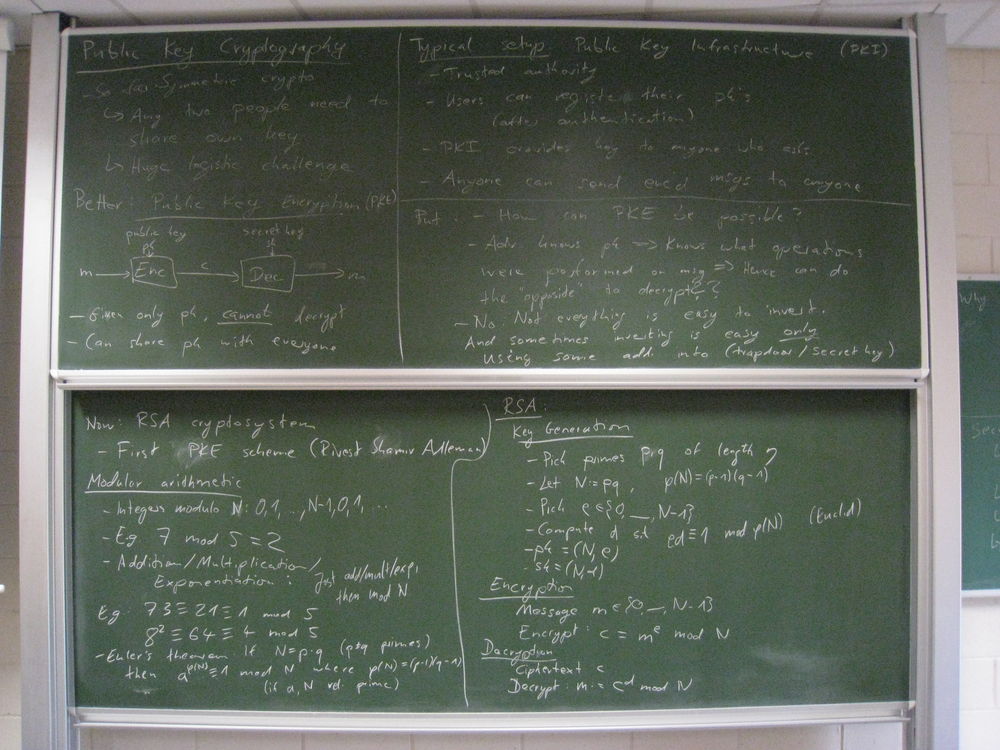 Public Key Cryptography
- So far: Symmetric crypto
↳ Any two people need to
share own key
↳ Huge logistic challenge
Better: Public Key Encryption (PKE)
public key
pk
secret key
sk
m → Enc c → Dec → m
- Given only pk, cannot decrypt
- Can share pk with everyone
Typical setup Public Key Infrastructure (PKI)
- Trusted authority
- Users can register their pk's
(after authentication)
- PKI provides key to anyone who asks
- Anyone can send enc'd msgs to anyone
But: - How can PKE be possible?
- Adv. knows pk ⇒ Knows what operations
were performed on msg ⇒ Hence can do
the "opposite" to decrypt??
- No: Not everything is easy to invert.
And sometimes inverting is easy only
using some add. info (trapdoor/secret key)
Now: RSA cryptosystem
- First PKE scheme (Rivest Shamir Adleman)
Modular arithmetic
- Integers modulo N: 0,1, ..., N-1,0,1, ...
- Eg 7 mod 5 = 2
- Addition/Multiplication/
Exponentiation: Just add/mult/exp,
then mod N
Eg: 7·3 ≡ 21 ≡ 1 mod 5
8² ≡ 64 ≡ 4 mod 5
- Euler's theorem If N=p·q (p≠q primes)
then a^φ(N) ≡ 1 mod N where φ(N)=(p-1)(q-1)
(if a, N rel. prime)
RSA:
Key Generation
- Pick primes p,q of length η
- Let N:=pq, φ(N)=(p-1)(q-1)
- Pick e∈{0, ..., N-1}
- Compute d s.t. ed≡1 mod φ(N) (Euclid)
- pk = (N,e)
- sk = (N,d)
Encryption
Message m∈{0, ..., N-1}
Encrypt: c = m^e mod N
Decryption
Ciphertext c
Decrypt: m := c^d mod N
Why